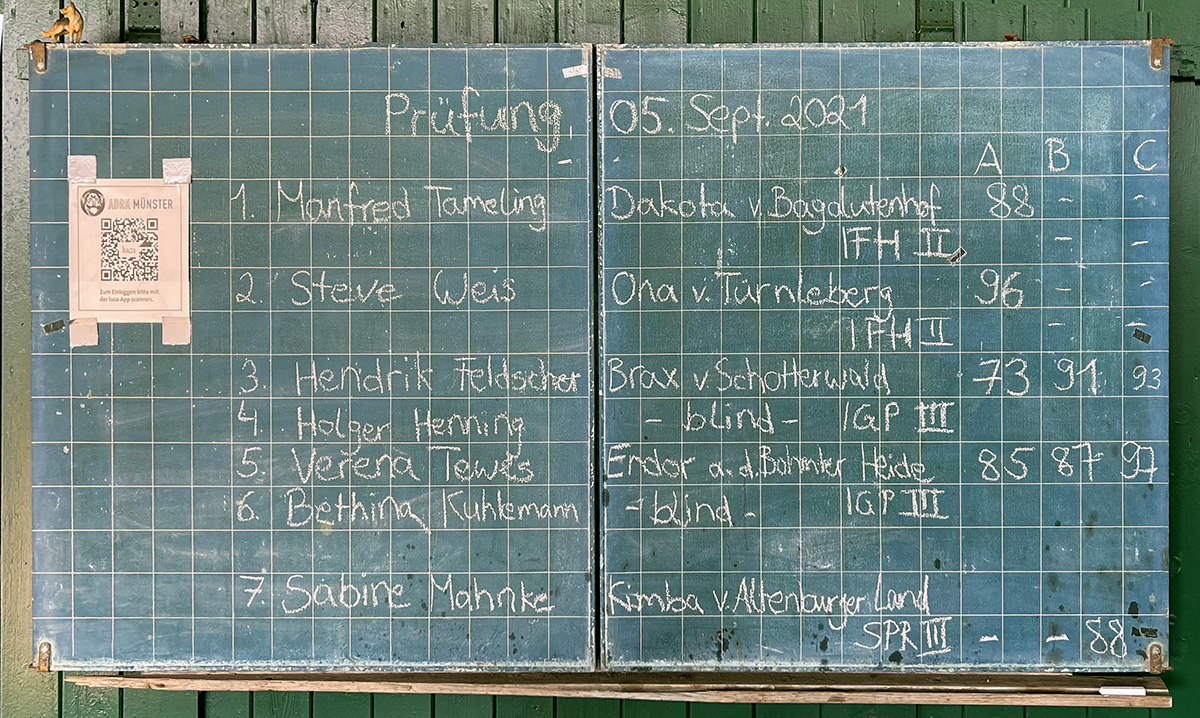 Prüfung, 05. Sept. 2021
A B C
ADRK MÜNSTER
luca
Zum Einloggen bitte mit
der luca-App scannen.
1. Manfred Tameling Dakota v. Bagdutenhof 88 - -
IFH II - -
2. Steve Weis Ona v. Türnleberg 96 - -
IFH II - -
3. Hendrik Feldscher Brax v Schotterwald 73 91 93
4. Holger Henning - blind - IGP III
5. Verena Tewes Endor a. d. Heide 85 87 97
6. Bethina Kuhlemann - blind - IGP III
7. Sabine Mahnke Kimba v. Altenburger Land
SPR III - - 88